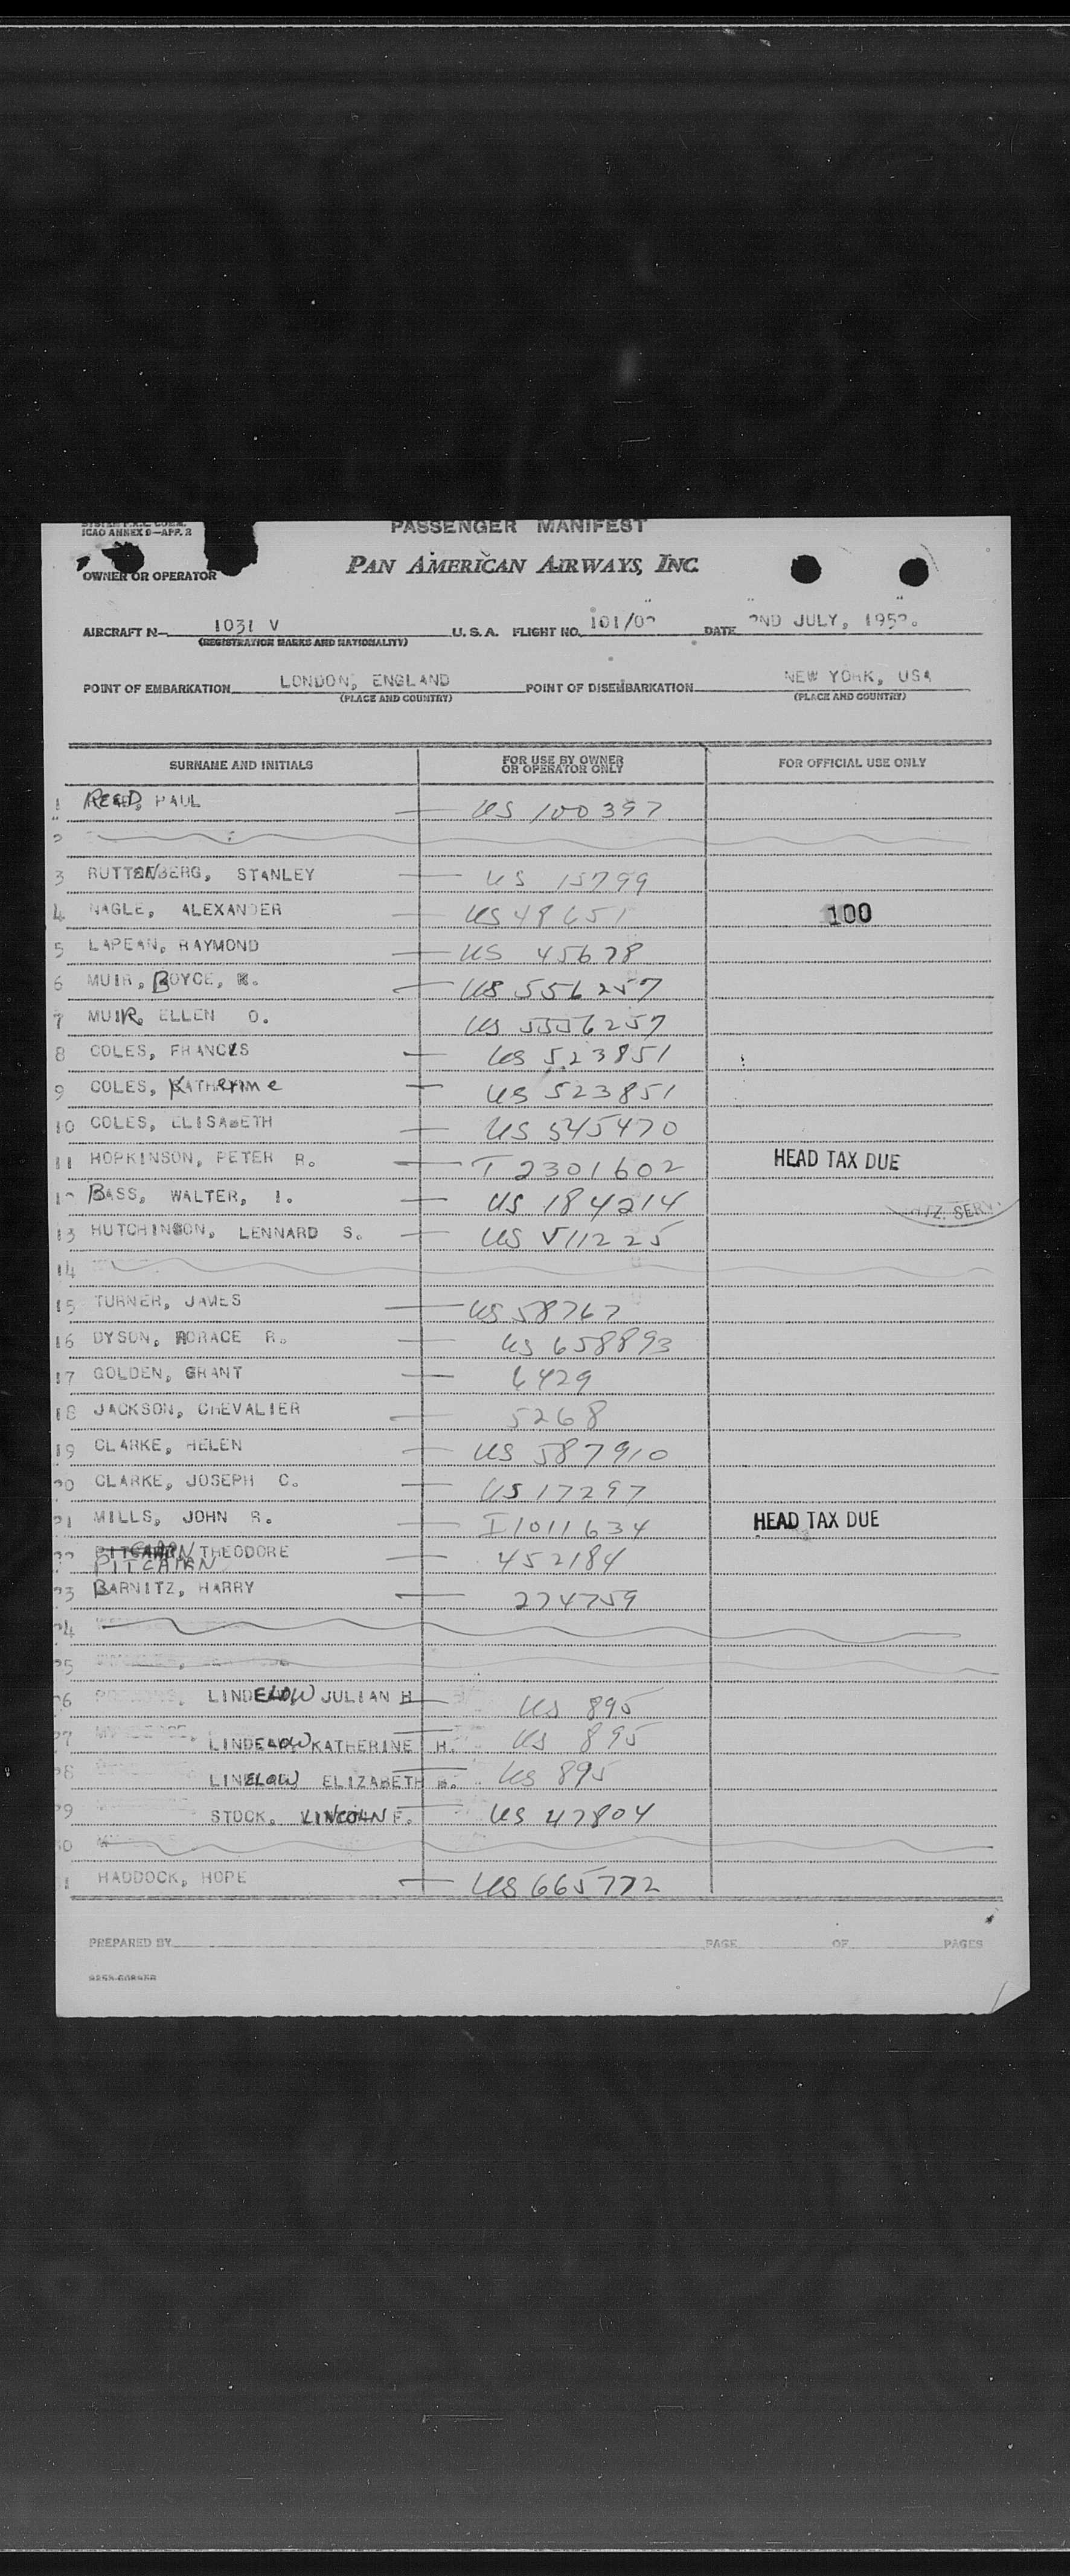 ICAO ANNEX 9—APP. 2
PASSENGER MANIFEST
OWNER OR OPERATOR PAN AMERICAN AIRWAYS, INC.
AIRCRAFT N— 1031 V U. S. A. FLIGHT NO. 101/02 DATE 2ND JULY, 1952.
(REGISTRATION MARKS AND NATIONALITY)
POINT OF EMBARKATION LONDON, ENGLAND POINT OF DISEMBARKATION NEW YORK, USA
(PLACE AND COUNTRY) (PLACE AND COUNTRY)
SURNAME AND INITIALS FOR USE BY OWNER OR OPERATOR ONLY FOR OFFICIAL USE ONLY
1 REED, PAUL — US 100397
2
3 RUTTENBERG, STANLEY — US 15799
4 NAGLE, ALEXANDER — US 48651 100
5 LAPEAN, RAYMOND — US 45678
6 MUIR, BOYCE, K. — US 556257
7 MUIR, ELLEN O. US 5556257
8 COLES, FRANCIS — US 523851
9 COLES, Katherine — US 523851
10 COLES, ELISABETH — US 545470
11 HOPKINSON, PETER R. — I 2301602 HEAD TAX DUE
12 BASS, WALTER, I. — US 184214
13 HUTCHINSON, LENNARD S. — US V11225
14
15 TURNER, JAMES — US 58767
16 DYSON, HORACE R. — US 658893
17 GOLDEN, GRANT — 6429
18 JACKSON, CHEVALIER — 5268
19 CLARKE, HELEN — US 587910
20 CLARKE, JOSEPH C. — US 17297
21 MILLS, JOHN R. — I 1011634 HEAD TAX DUE
22 PITCAIRN THEODORE — 452184
PITCAIRN
23 BARNITZ, HARRY — 274759
24
25
26 LINDELOW JULIAN H — US 895
27 LINDELOW KATHERINE H. — US 895
28 LINELOW ELIZABETH — US 895
29 STOCK, LINCOLN F. — US 47804
30
1 HADDOCK, HOPE — US 665772
PREPARED BY PAGE OF PAGES